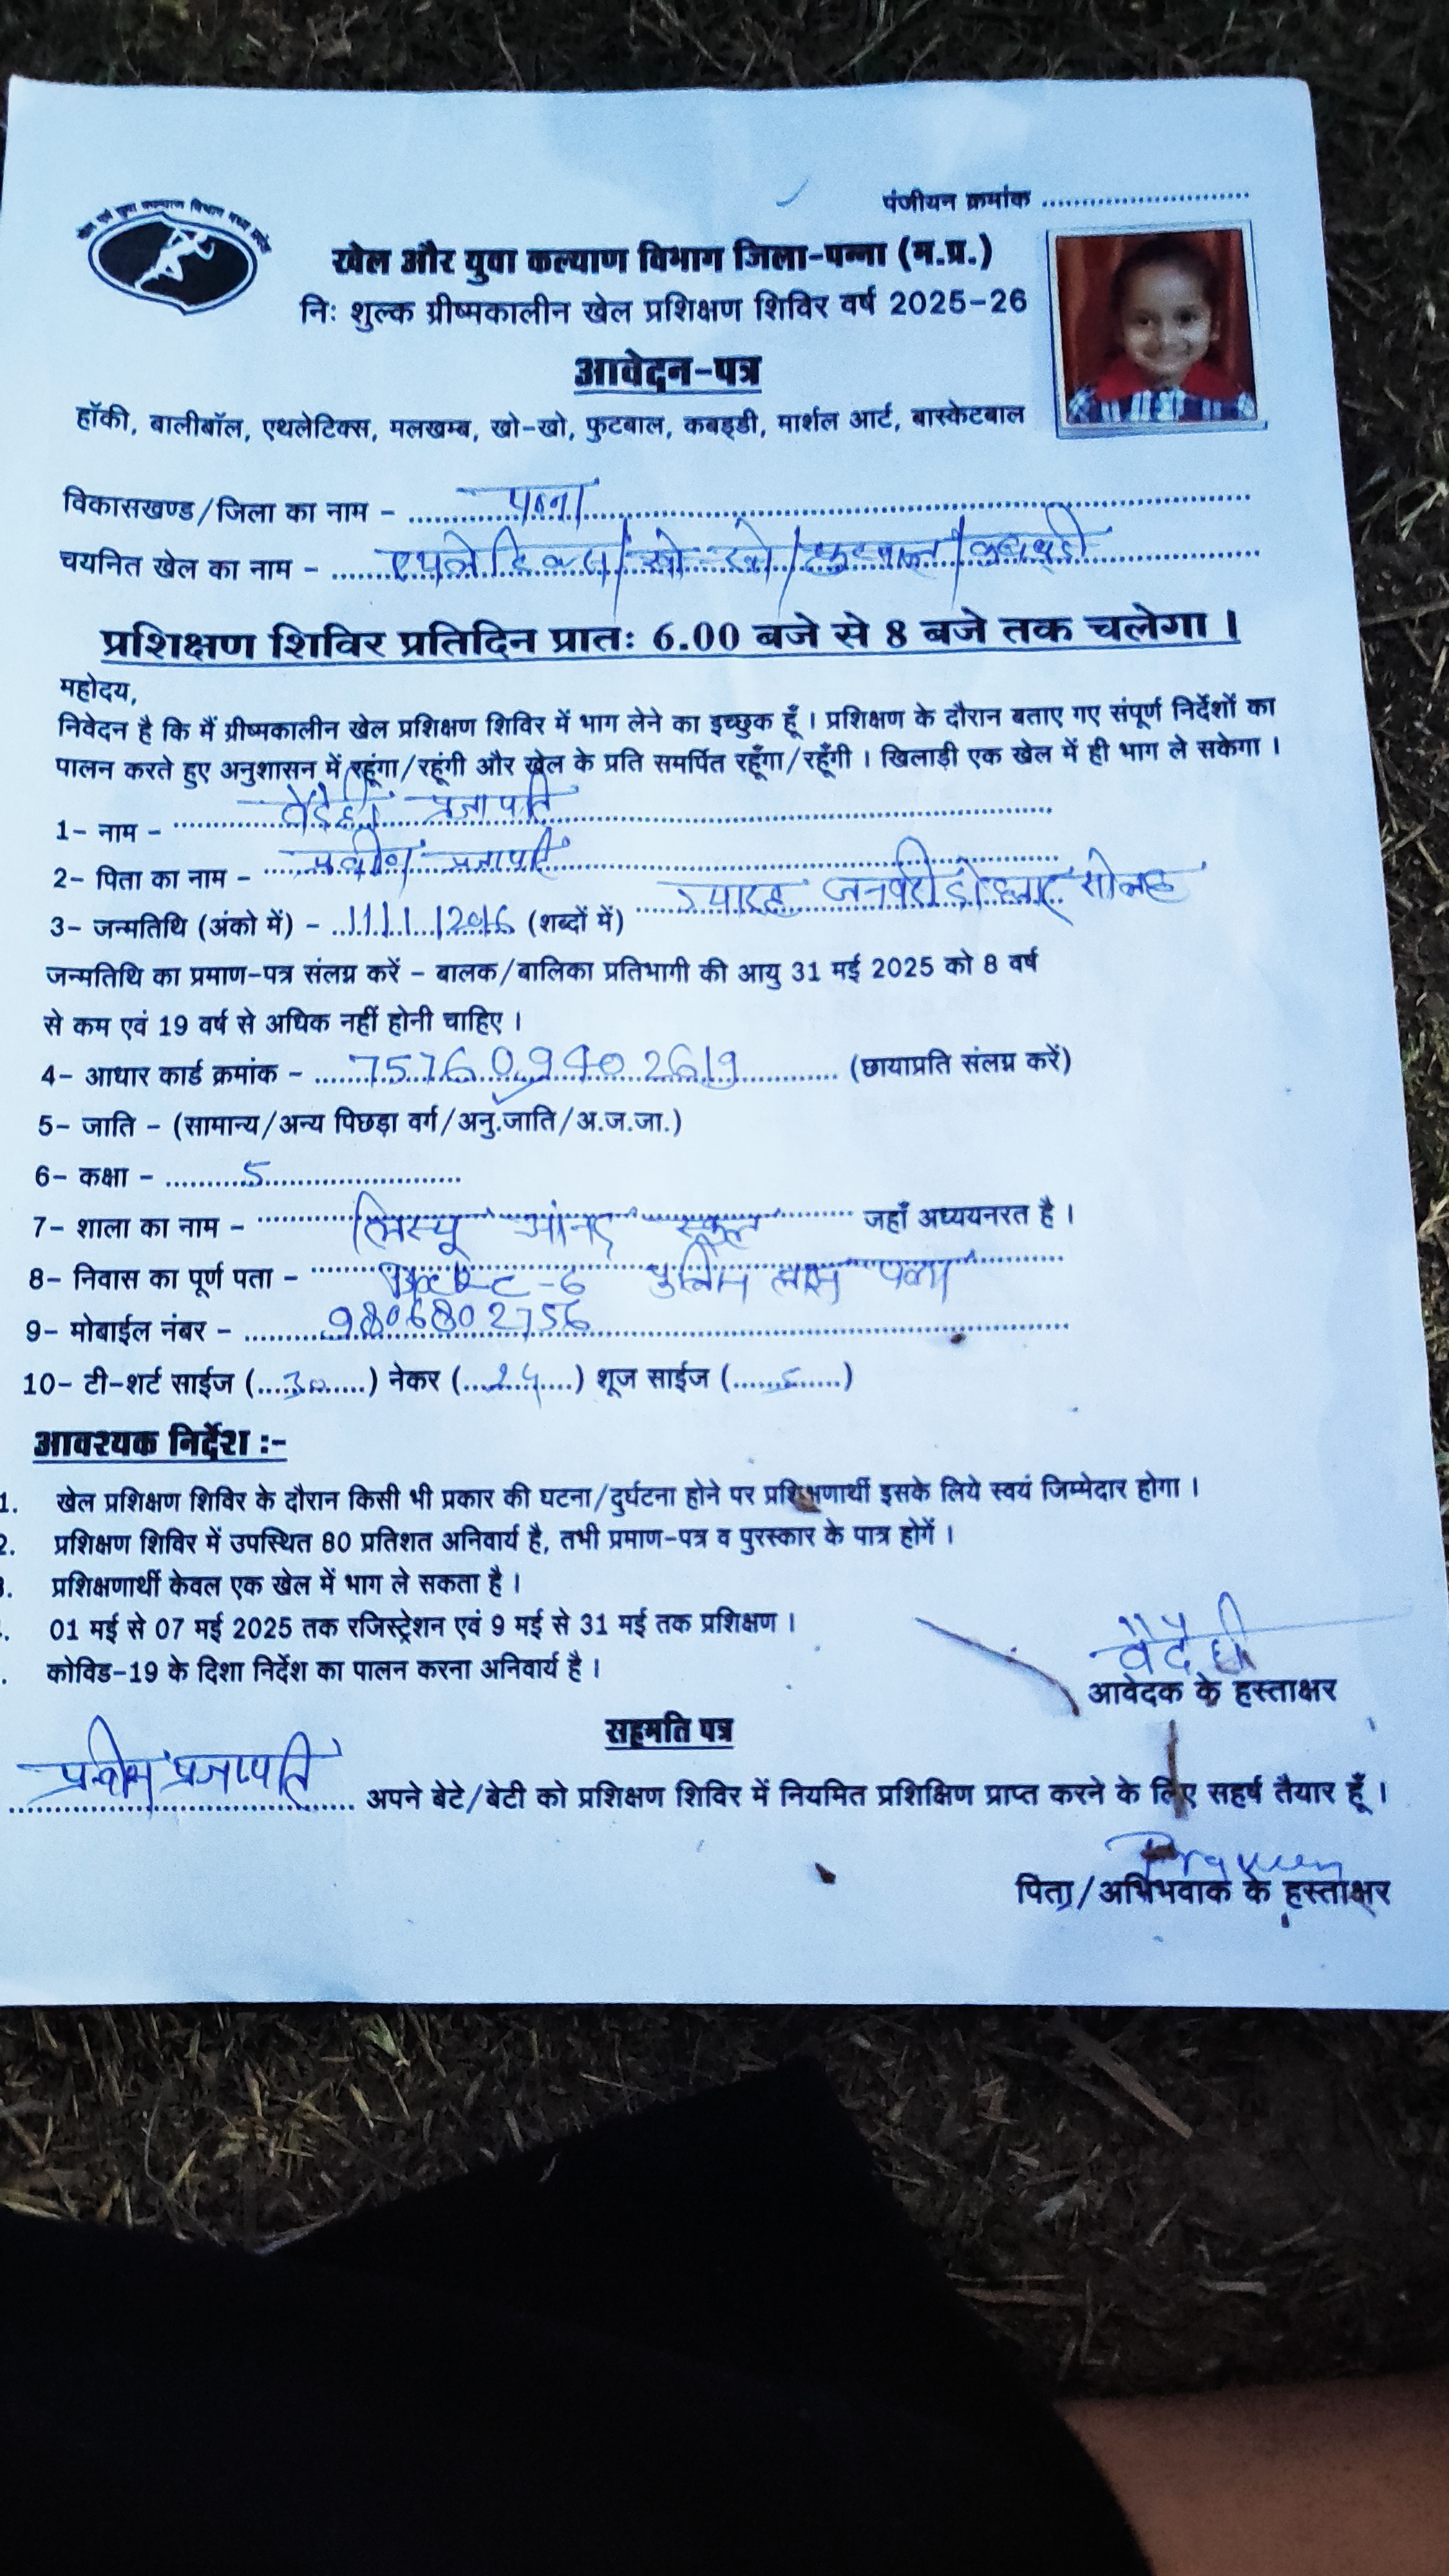 पंजीयन क्रमांक
खेल और युवा कल्याण विभाग जिला-पन्ना (म.प्र.)
निः शुल्क ग्रीष्मकालीन खेल प्रशिक्षण शिविर वर्ष 2025-26
आवेदन-पत्र
हॉकी, बालीबॉल, एथलेटिक्स, मलखम्ब, खो-खो, फुटबाल, कबड्डी, मार्शल आर्ट, बास्केटबाल
विकासखण्ड/जिला का नाम - पन्ना
चयनित खेल का नाम - एथलेटिक्स/खो-खो/फुटबाल/कबड्डी
प्रशिक्षण शिविर प्रतिदिन प्रातः 6.00 बजे से 8 बजे तक चलेगा।
महोदय,
निवेदन है कि मैं ग्रीष्मकालीन खेल प्रशिक्षण शिविर में भाग लेने का इच्छुक हूँ। प्रशिक्षण के दौरान बताए गए संपूर्ण निर्देशों का
पालन करते हुए अनुशासन में रहूंगा/रहूंगी और खेल के प्रति समर्पित रहूँगा/रहूँगी। खिलाड़ी एक खेल में ही भाग ले सकेगा।
1- नाम - वैदेही प्रजापति
2- पिता का नाम - प्रवीण प्रजापति
3- जन्मतिथि (अंको में) - 11/1/2016 (शब्दों में) ग्यारह जनवरी दो हजार सोलह
जन्मतिथि का प्रमाण-पत्र संलग्न करें - बालक/बालिका प्रतिभागी की आयु 31 मई 2025 को 8 वर्ष
से कम एवं 19 वर्ष से अधिक नहीं होनी चाहिए।
4- आधार कार्ड क्रमांक - (छायाप्रति संलग्न करें)
5- जाति - (सामान्य/अन्य पिछड़ा वर्ग/अनु.जाति/अ.ज.जा.)
6- कक्षा - 5
7- शाला का नाम - लिस्यू आनंद स्कूल जहाँ अध्ययनरत है।
8- निवास का पूर्ण पता - C-6 पुलिस लाईन पन्ना
9- मोबाईल नंबर - 9806802756
10- टी-शर्ट साईज (30) नेकर (24) शूज साईज (5)
आवश्यक निर्देश :-
1. खेल प्रशिक्षण शिविर के दौरान किसी भी प्रकार की घटना/दुर्घटना होने पर प्रशिक्षणार्थी इसके लिये स्वयं जिम्मेदार होगा।
2. प्रशिक्षण शिविर में उपस्थित 80 प्रतिशत अनिवार्य है, तभी प्रमाण-पत्र व पुरस्कार के पात्र होगें।
प्रशिक्षणार्थी केवल एक खेल में भाग ले सकता है।
01 मई से 07 मई 2025 तक रजिस्ट्रेशन एवं 9 मई से 31 मई तक प्रशिक्षण।
कोविड-19 के दिशा निर्देश का पालन करना अनिवार्य है।
वैदेही
आवेदक के हस्ताक्षर
सहमति पत्र
प्रवीण प्रजापति अपने बेटे/बेटी को प्रशिक्षण शिविर में नियमित प्रशिक्षिण प्राप्त करने के लिए सहर्ष तैयार हूँ।
Praveen
पिता/अभिभवाक के हस्ताक्षर